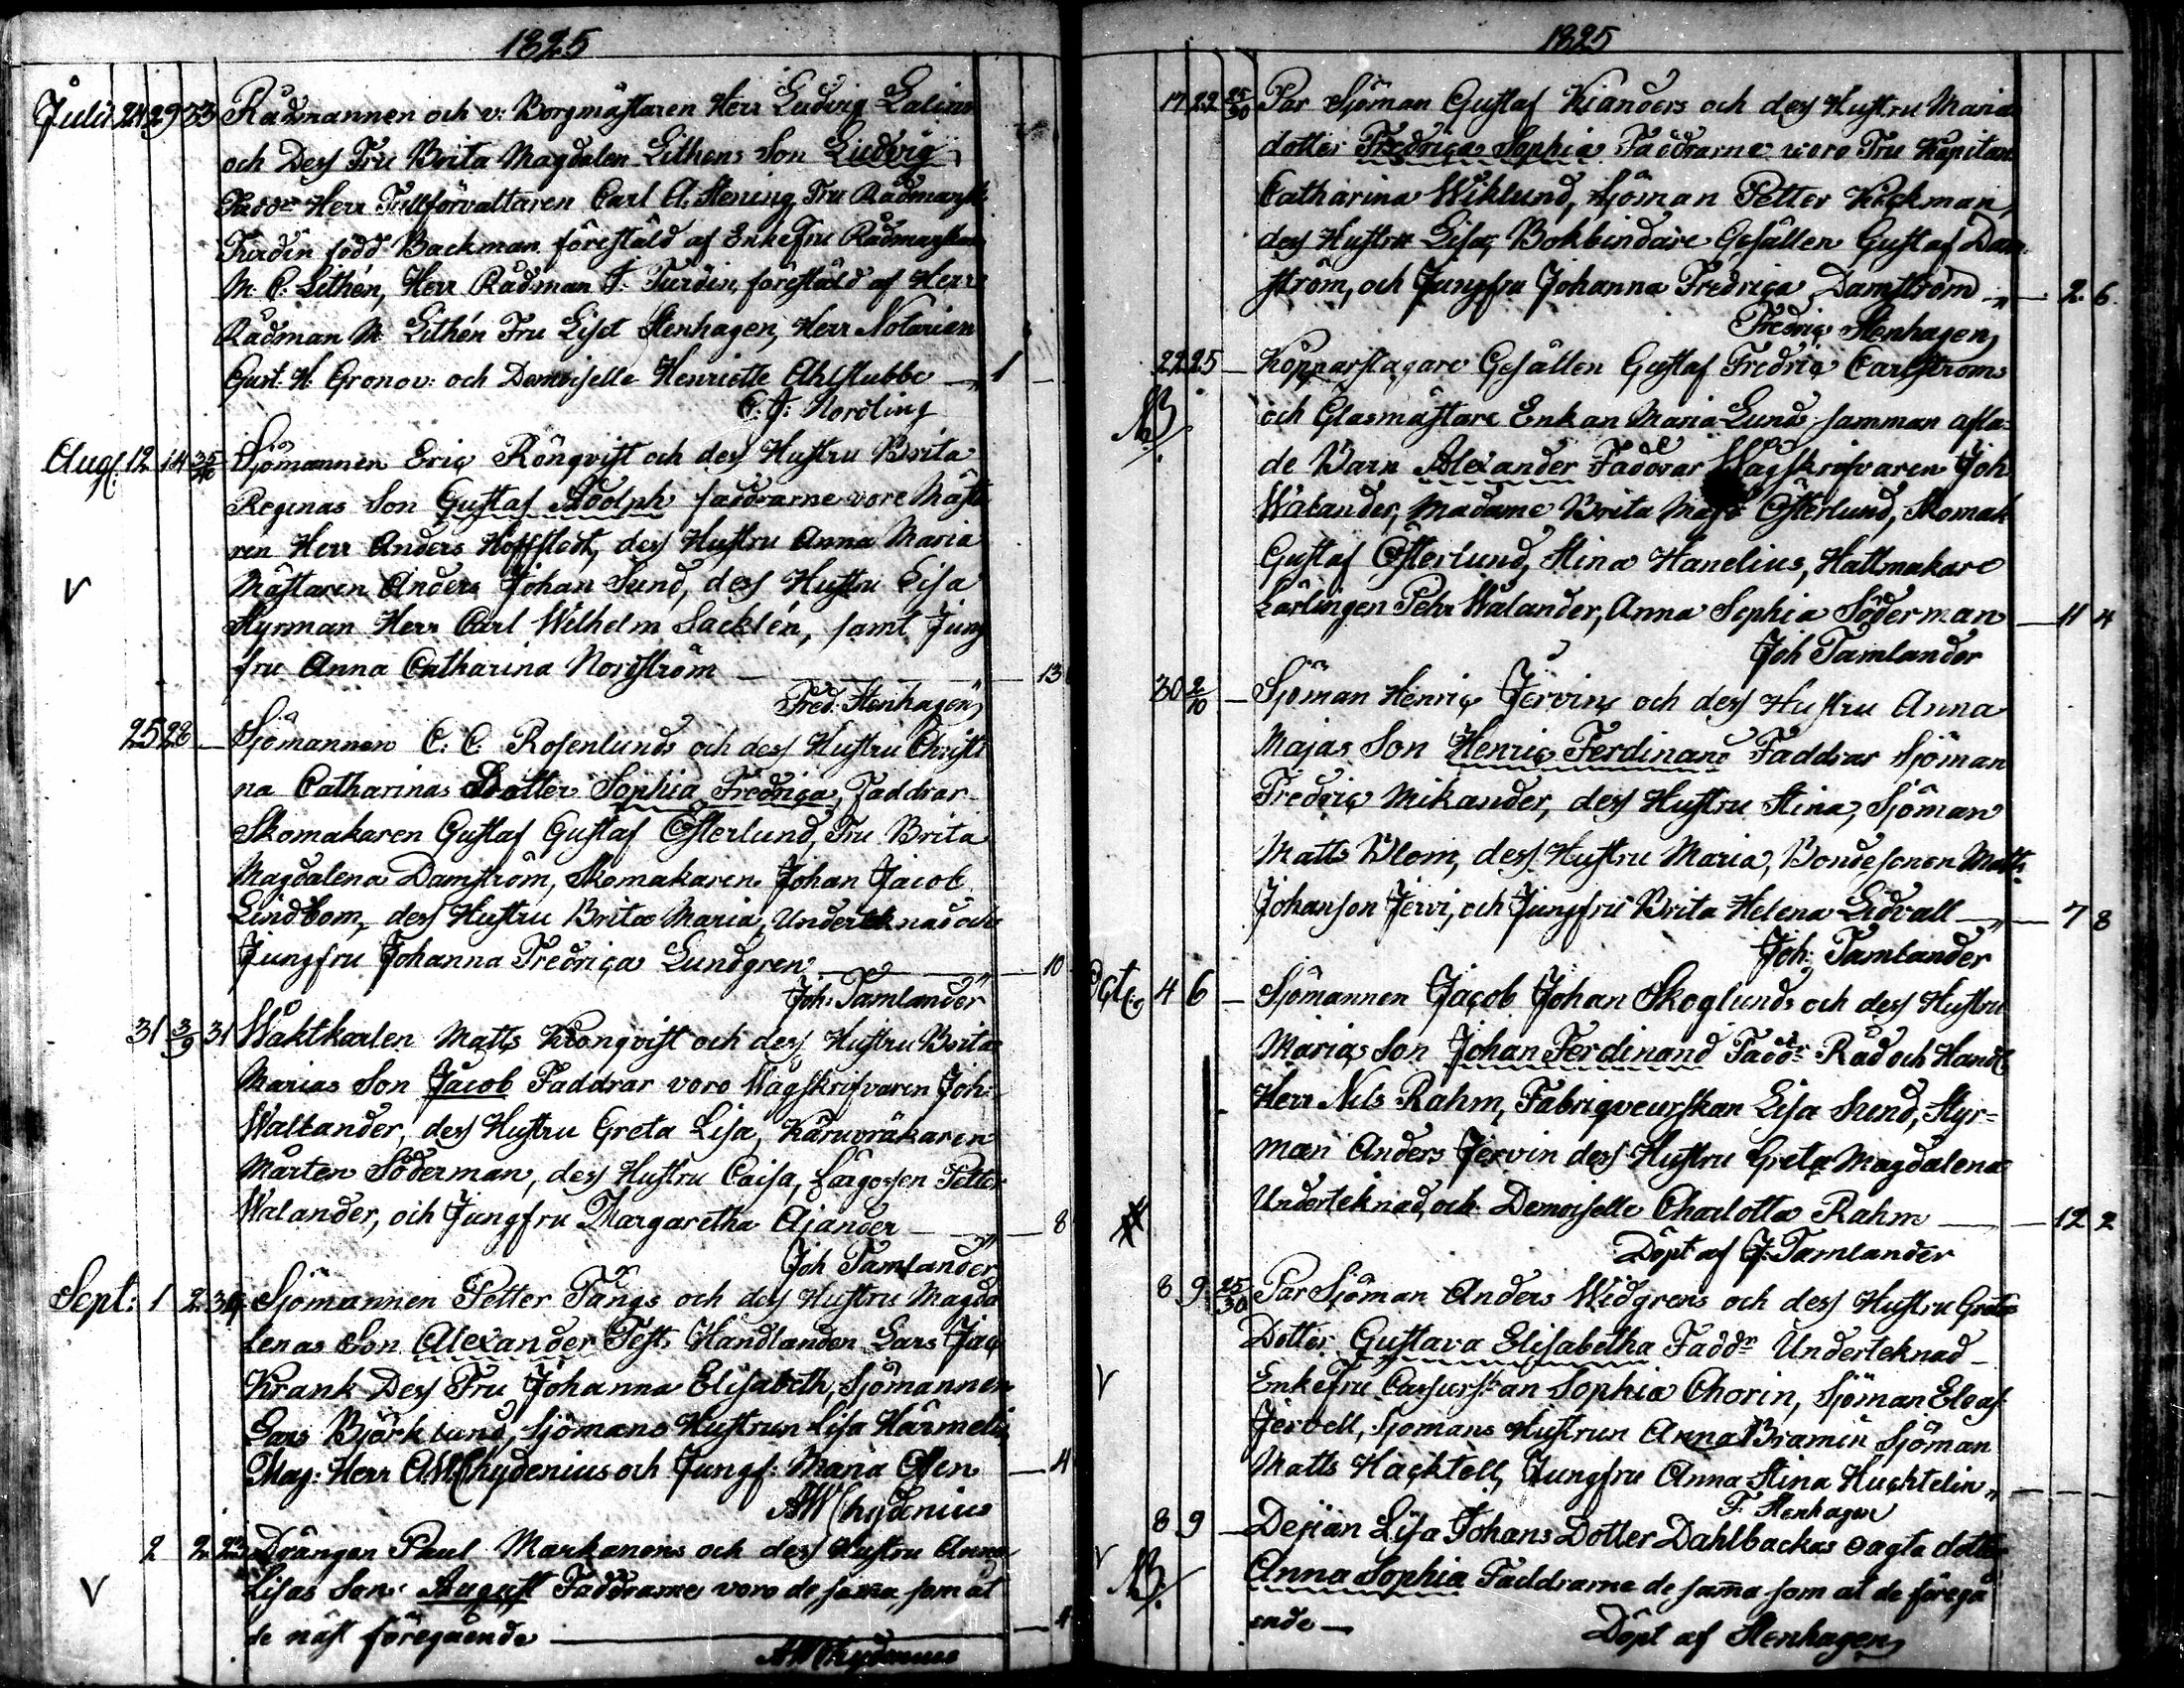 1825
Julii 24 29 33 Rådmannen och v: Borgmästaren Herr Ludvig Calini
och Dess Fru Brita Magdalen Lithens Son Ludvig
Faddr Herr Tullförvaltaren Carl A. Stening Fru Rådmansk:
Turdin född Backman föreståld af Enkefru Rådmanskan
M. C. Lithén, Herr Rådman J. Turdin, föreståld af Herr
Rådman M Lithén Fru Liset Stenhagen, Herr Notarien
Gust. H. Gronov: och Demoiselle Henriette Ahlstubbe — 1 —
C. J: Nordling
Aug: 12 14 35/40 Sjömannen Eric Rönqvist och dess Hustru Brita
Reginas Son Gustaf Adolph faddrarne vore Mästa
ren Herr Anders Höffstedt, dess Hustru Anna Maria
V Mästaren Anders Johan Sund, dess Hustru Lisa
Styrman Herr Carl Wilhelm Lacklén, samt Jung
fru Anna Catharina Nordström — 13
Fred: Stenhagen
25 28 — Sjömannen C. C. Rosenlunds och dess Hustru Christi
na Catharinas Dotter Sophia Fredrica, Faddrar
Skomakaren Gustaf Gustaf Österlund, Fru Brita
Magdalena Damström, Skomakaren Johan Jacob
Lindbom, dess Hustru Brita Maria, Underteknad och
Jungfru Johanna Fredrica Lundgren — 10
Joh: Tamlander
31 3/9 31 Waktkarlen Matts Kronqvist och dess Hustru Brita
Marias Son Jacob Faddrar voro Wågskrifvaren Joh:
Wallander, dess Hustru Greta Lisa, Karuvräkaren
Mårten Söderman, dess Hustru Caisa, Lärgossen Petter
Walander, och Jungfru Margaretha Ajander — 8
Joh Tamlander
Sept: 1 2 39 Sjömannen Petter Tångs och dess Hustru Magda
lenas Son Alexander Test. Handlanden Lars Jac
Krank Dess Fru Johanna Elisabeth, Sjömannen
Lars Björklund, Sjömans Hustrun Lisa Harmeli
Mag: Herr A.W. Chydenius och Jungf: Maria Olen — 4
AW Chydenius
2 2 23 Drängen Paul Markanens och dess Hustru Anna
V Lisas Son August Faddrarne voro de samma som at
de näst föregående — 4
AW Chydenius
1825
17 22 25/30 Par Sjöman Gustaf Kianders och dess Hustru Marias
dotter Fredrica Sophia Faddrarne voro Fru Kapitans
Catharina Wiklund, Sjöman Petter Käckman,
dess Hustru Lisa, Bokbindare Gesällen Gustaf Dam
ström, och Jungfru Johanna Fredrica Damström — 2 6
Fredric Stenhagen
22 25 — Kopparslagare Gesällen Gustaf Fredric Carlströms
NB och Glasmästare Enkan Maria Lunds samman afla-
de Barn Alexander Faddrar Wågskrifvaren Joh
Walander, Madame Brita Maj: Österlund, Skomak
Gustaf Österlund, Stina Hanelius, Hattmakare
Lärlingen Pehr Walander, Anna Sophia Söderman — 11 4
Joh Tamlander
30 2/10 — Sjöman Henric Jervins och dess Hustru Anna
Majas Son Henric Ferdinand Faddrar Sjöman
Fredric Mikander, dess Hustru Stina, Sjöman
Matts Blom, dess Hustru Maria, Bondesonen Matts
Johanson Jervi, och Jungfru Brita Helena Lidvall — 7 8
Joh: Tamlander
Oct: 4 6 — Sjömannen Jacob Johan Skoglunds och dess Hustru
Marias Son Johan Ferdinand Faddr Råd och Handl
Herr Nils Rahm, Fabriqveurskan Lisa Sund, Styr-
man Anders Jervin dess Hustru Greta Magdalena
Underteknad, och Demoiselle Charlotta Rahm — 12 2
Döpt af J: Tamlander
8 9 25/30 Par Sjöman Anders Widgrens och dess Hustru Gretas
Dotter Gustava Elisabetha Faddr Underteknad
V Enkefru Cassurskan Sophia Chorin, Sjöman Eleas
Jervell, Sjomans Hustrun Anna Bramin Sjöman
Matts Hacktell, Jungfru Anna Stina Huchtelin
F. Stenhagen
8 9 — Dejian Lisa Johans Dotter Dahlbackas oägta dotter
V NB Anna Sophia Faddrarne de samma som at de föregå
ende —
Döpt af Stenhagen